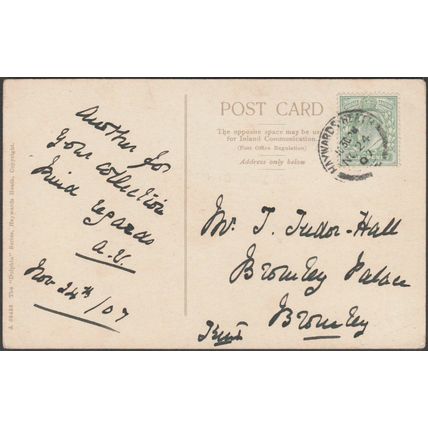 POST CARD
The opposite space may be used
for Inland Communication.
(Post Office Regulation)
Address only below
HAYWARDS HEATH
NO 24
Another for
your collection
Kind regards
A.V.
Nov 24th/07
Mr. T. Tudor-Hall
Bromley Palace
Bromley
Kent
The "Dolphin" Series, Haywards Heath, Copyright.